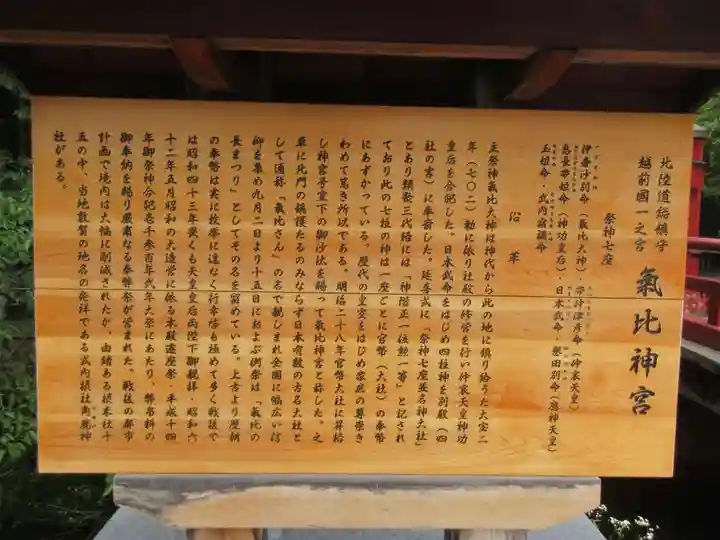 北陸道総鎮守
越前國一之宮
氣比神宮
祭神七座
伊奢沙別命（氣比大神）・帯仲津彦命（仲哀天皇）
息長帯姫命（神功皇后）・日本武命・誉田別命（應神天皇）
玉姫命・武内宿禰命
沿革
主祭神氣比大神は神代から此の地に鎮り給うた大宝二
年（七〇二）勅に依り社殿の修営を行い仲哀天皇神功
皇后を合祀した。日本武命をはじめ四柱神を別殿（四
社の宮）に奉齋した。延喜式に「祭神七座並名神大社」
とあり類聚三代格には「神階正一位勲一等」と記され
ており此の七柱の神は一座ごとに官幣（大社）の奉幣
にあずかっている。歴代の皇室をはじめ衆庶の尊崇き
わめて篤き所以である。明治二十八年官幣大社に昇格
し神宮号宣下の御沙汰を賜って氣比神宮と称した。之
單に北門の鎮護たるのみならず日本有数の古名大社と
して通称「氣比さん」の名で親しまれ全國に幅広い信
仰を集め九月二日より十五日に及ぶ例祭は「氣比の
長まつり」としてその名を留めている。上古より歴朝
の奉幣は実に枚挙に遑なく行幸啓も極めて多く戦後で
は昭和四十三年畏くも天皇皇后両陛下御親拝・昭和六
十二年五月昭和の大造営に依る本殿遷座祭 平成十四
年御祭神合祀壱千参百年式年大祭にあたり、幣帛料の
御奉納を賜り厳粛なる奉幣祭が営まれた。戦後の都市
計画で境内は大幅に削減されたが、由緒ある摂末社十
五の中、当地敦賀の地名の発祥である式内摂社角鹿神
社がある。